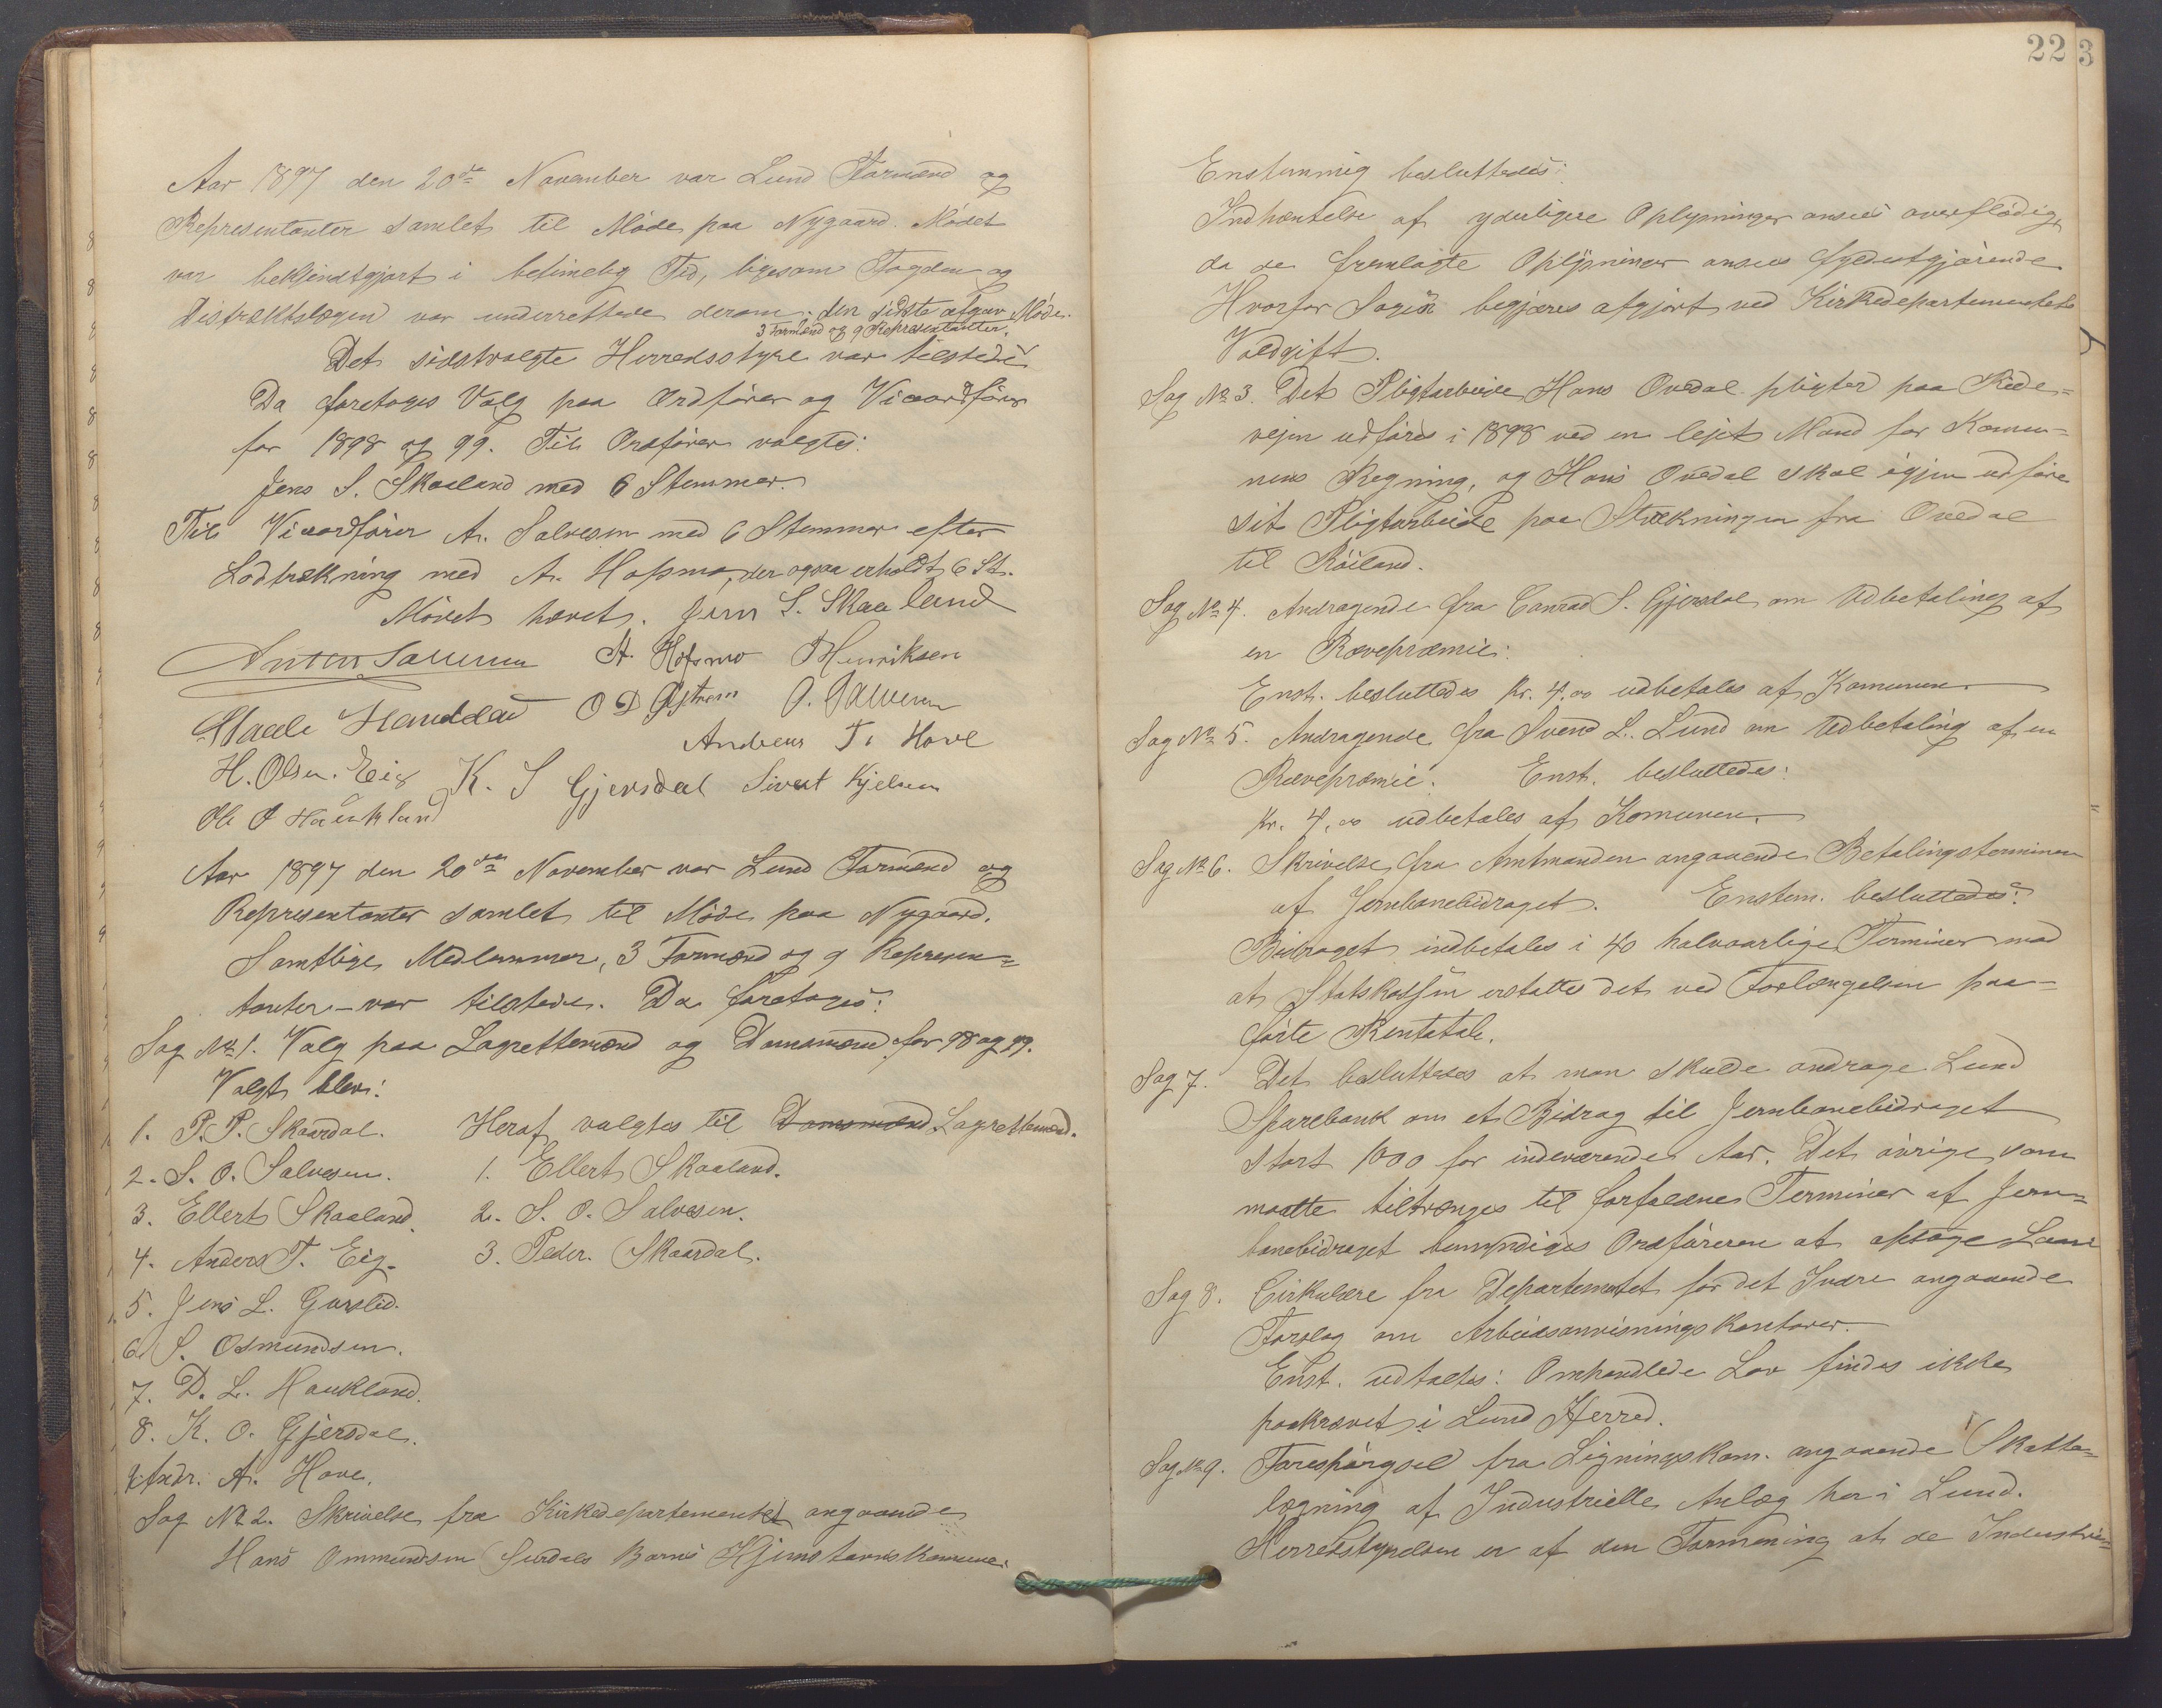 Aar 1897 den 20de November var Lund Formænd og
Representanter samlet til Møde paa Nygaard. Mødet
var bekjendtgjort i betimelig Tid, ligesom Fogden og
Distrektslægen var underrettede derom.
3 Formænd og 9 Representanter.
Det sidstvalgte Herredsstyre var tilstede
Da foretoges Valg paa Ordfører og Viceordfører
for 1898 og 99. Til Ordfører valgtes:
Jens S. Skaaland med 6 Stemmer.
Til Viceordfører A. Salvesen med 6 Stemmer efter
Lodtrækning med A. Hofsmo, der ogsaa erholdt 6 St.
Mødet hævet. Jens S. Skaaland
A. Hofsmo Henriksen
Andreas T. Hove
H. Olsen Eig K. S Gjersdal Sivert Kjelsen
Ole O Haukland
Aar 1897 den 20de November var Lund Formænd og
Representanter samlet til Møde paa Nygaard.
Samtlige Medlemmer, 3 Formænd og 9 Represen=
tanter - var tilstede. Da foretoges:
Sag No 1. Valg paa Lagrettemænd og Domsmænd for 98 og 99.
Valgt blev:
1. P. P. Skaardal. Heraf valgtes til Domsmænd Lagrettemænd.
2. S. O. Salvesen. 1. Ellert Skaaland.
3. Ellert Skaaland. 2. S. O. Salvesen.
4. Anders T. Eig. 3. Peder Skaardal.
5. Jens L. Gursled.
6. S. Osmundsen.
7. D. L. Haukland.
8. K. O. Gjersdal.
9. Andr. A. Hove.
Sag No 2. Skrivelse fra Kirkedepartementet angaaende
Hans Ommundsen Surdals Barns Hjemstavnskomune.
22 3
Enstemmig besluttedes:
Indhæntelse af yderligere Oplysninger ansees overflødig,
da de fremlagte Oplysninger ansees fyldestgjørende
Hvorfor Sagen begjæres afgjort ved Kirkedepartementets
Voldgift.
Sag No 3. Det Pligtarbeide Hans Ovedal pligter paa Rède-
vejen udføres i 1898 ved en lejet Mand for Komu-
nens Regning, og Hans Ovedal skal igjen udføre
sit Pligtarbeide paa Strækningen fra Ovedal
til Røiland.
Sag No 4. Andragende fra Conrad S. Gjersdal om Udbetaling af
en Rævepræmie:
Enst. besluttedes Kr. 4.00 udbetales af Komunen.
Sag No 5. Andragende fra Svend L. Lund om Udbetaling af en
Rævepræmie. Enst. besluttedes:
Kr. 4,00 udbetales af Komunen.
Sag No 6. Skrivelse fra Amtmanden angaaende Betalingsterminen
af Jernbanebidraget. Enstem. besluttedes:
Bidraget indbetales i 40 halvaarlige Terminer mod
at Statskassen erstattes det ved Forlængelsen paa-
førte Rentetab.
Sag 7. Det besluttedes at man skulde andrage Lund
Sparebank om et Bidrag til Jernbanebidraget
stort 1000 for indeværende Aar. Det øvrige som
maatte tiltrænges til forfaldne Terminer af Jern=
banebidraget bemyndiges Ordføreren at optage Laan
Sag 8. Cirkulære fra Departementet for det Indre angaaende
Forslag om Arbeidsanvisningskontorer.
Enst. udtaltes: Omhandlede Lov findes ikke
paakrævet i Lund Herred.
Sag No 9. Forespørgsel fra Ligningskom. angaaende Skatte=
lægning af Industrielle Anlæg her i Lund.
Herredstyrelsen er af den Formening at de Industrie=